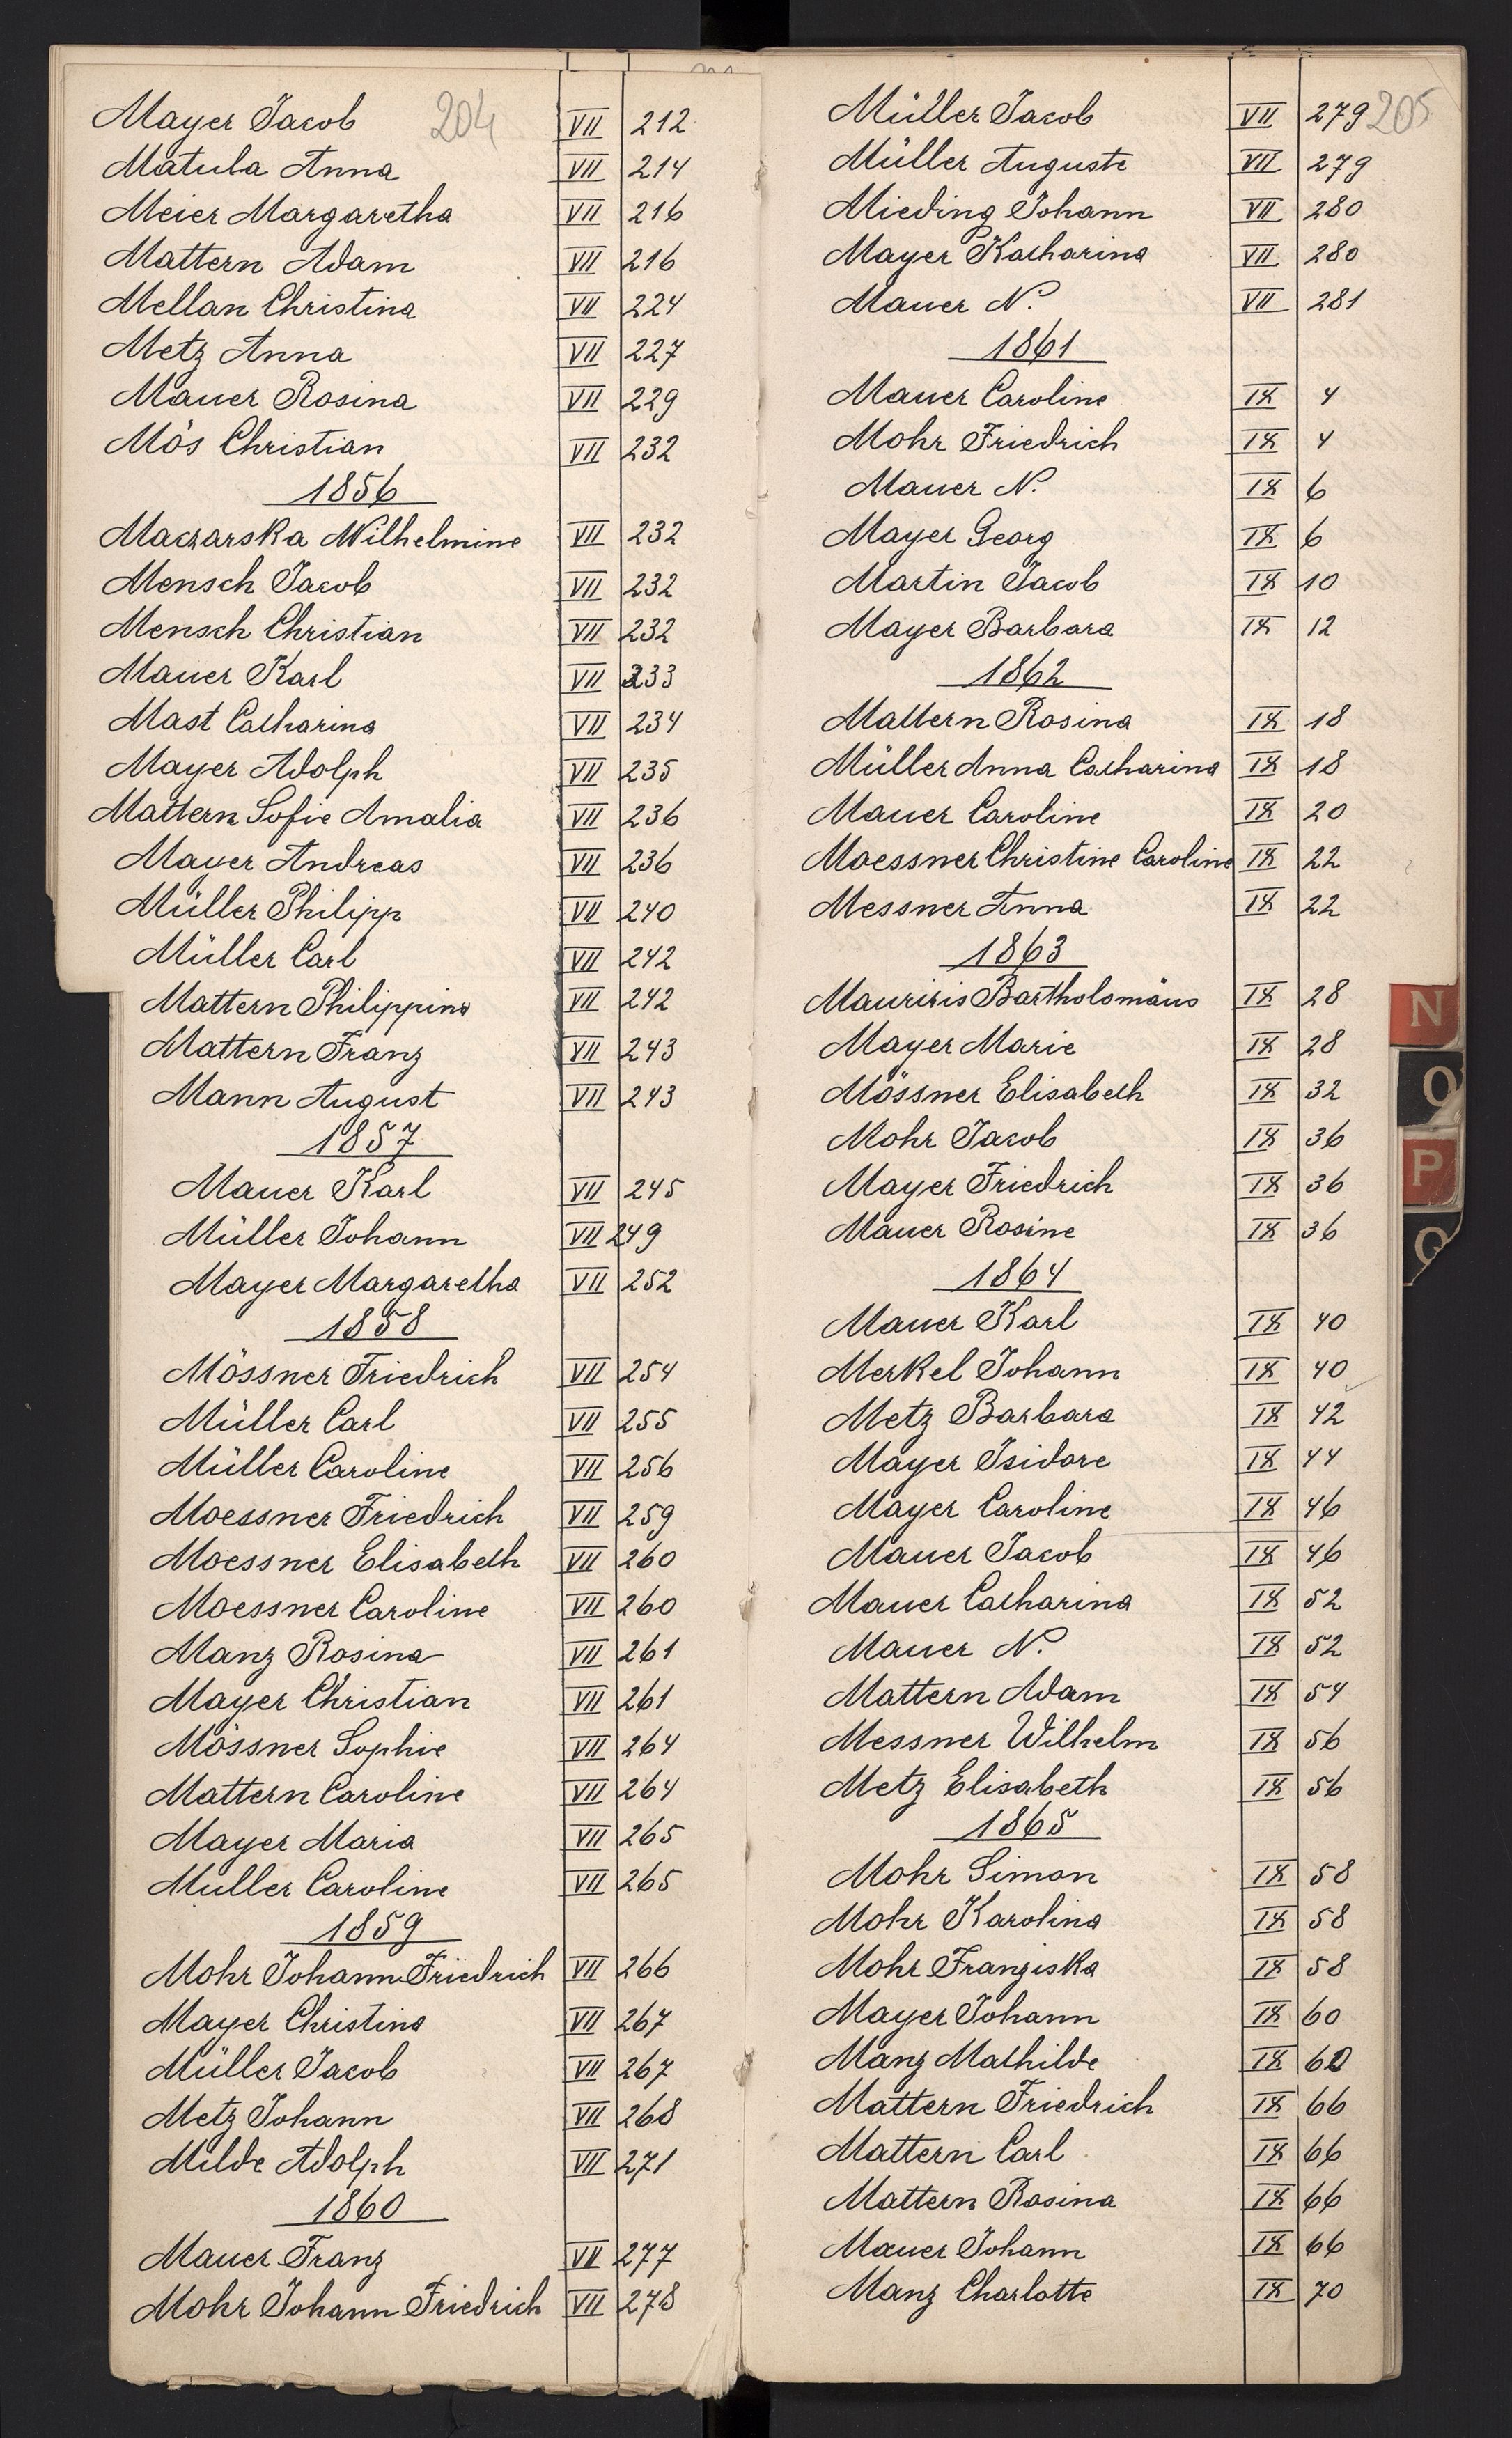 204
Mayer Jacob VII 212
Matula Anna VII 214
Meier Margaretha VII 216
Mattern Adam VII 216
Mellan Christina VII 224
Metz Anna VII 227
Mauer Rosina VII 229
Mös Christian VII 232
1856
Maczarska Wilhelmine VII 232
Mensch Jacob VII 232
Mensch Christian VII 232
Mauer Karl VII 233
Mast Catharina VII 234
Mayer Adolph VII 235
Mattern Sofie Amalia VII 236
Mayer Andreas VII 236
Müller Philipp VII 240
Müller Carl VII 242
Mattern Philippina VII 242
Mattern Franz VII 243
Mann August VII 243
1857
Mauer Karl VII 245
Müller Johann VII 249
Mayer Margaretha VII 252
1858
Mössner Friedrich VII 254
Müller Carl VII 255
Müller Caroline VII 256
Moessner Friedrich VII 259
Moessner Elisabeth VII 260
Moessner Caroline VII 260
Manz Rosina VII 261
Mayer Christian VII 261
Mössner Sophie VII 264
Mattern Caroline VII 264
Mayer Maria VII 265
Muller Caroline VII 265
1859
Mohr Johann Friedrich VII 266
Mayer Christina VII 267
Müller Jacob VII 267
Metz Johann VII 268
Milde Adolph VII 271
1860
Mauer Franz VII 277
Mohr Johann Friedrich VII 278
205
Müller Jacob VII 279
Müller Auguste VII 279
Mieding Johann VII 280
Mayer Katharina VII 280
Mauer N. VII 281
1861
Mauer Caroline IX 4
Mohr Friedrich IX 4
Mauer N. IX 6
Mayer Georg IX 6
Martin Jacob IX 10
Mayer Barbara IX 12
1862
Mattern Rosina IX 18
Müller Anna Catharina IX 18
Mauer Caroline IX 20
Moessner Christine Caroline IX 22
Messner Anna IX 22
1863
Maurizis Bartholomäus IX 28
Mayer Marie IX 28
Mössner Elisabeth IX 32
Mohr Jacob IX 36
Mayer Friedrich IX 36
Mauer Rosine IX 36
1864
Mauer Karl IX 40
Merkel Johann IX 40
Metz Barbara IX 42
Mayer Isidore IX 44
Mayer Caroline IX 46
Mauer Jacob IX 46
Mauer Catharina IX 52
Mauer N. IX 52
Mattern Adam IX 54
Messner Wilhelm IX 56
Metz Elisabeth IX 56
1865
Mohr Simon IX 58
Mohr Karolina IX 58
Mohr Franziska IX 58
Mayer Johann IX 60
Manz Mathilde IX
Mattern Friedrich IX 66
Mattern Carl IX 66
Mattern Rosina IX 66
Mauer Johann IX 66
Manz Charlotte IX 70
N
O
P
Q